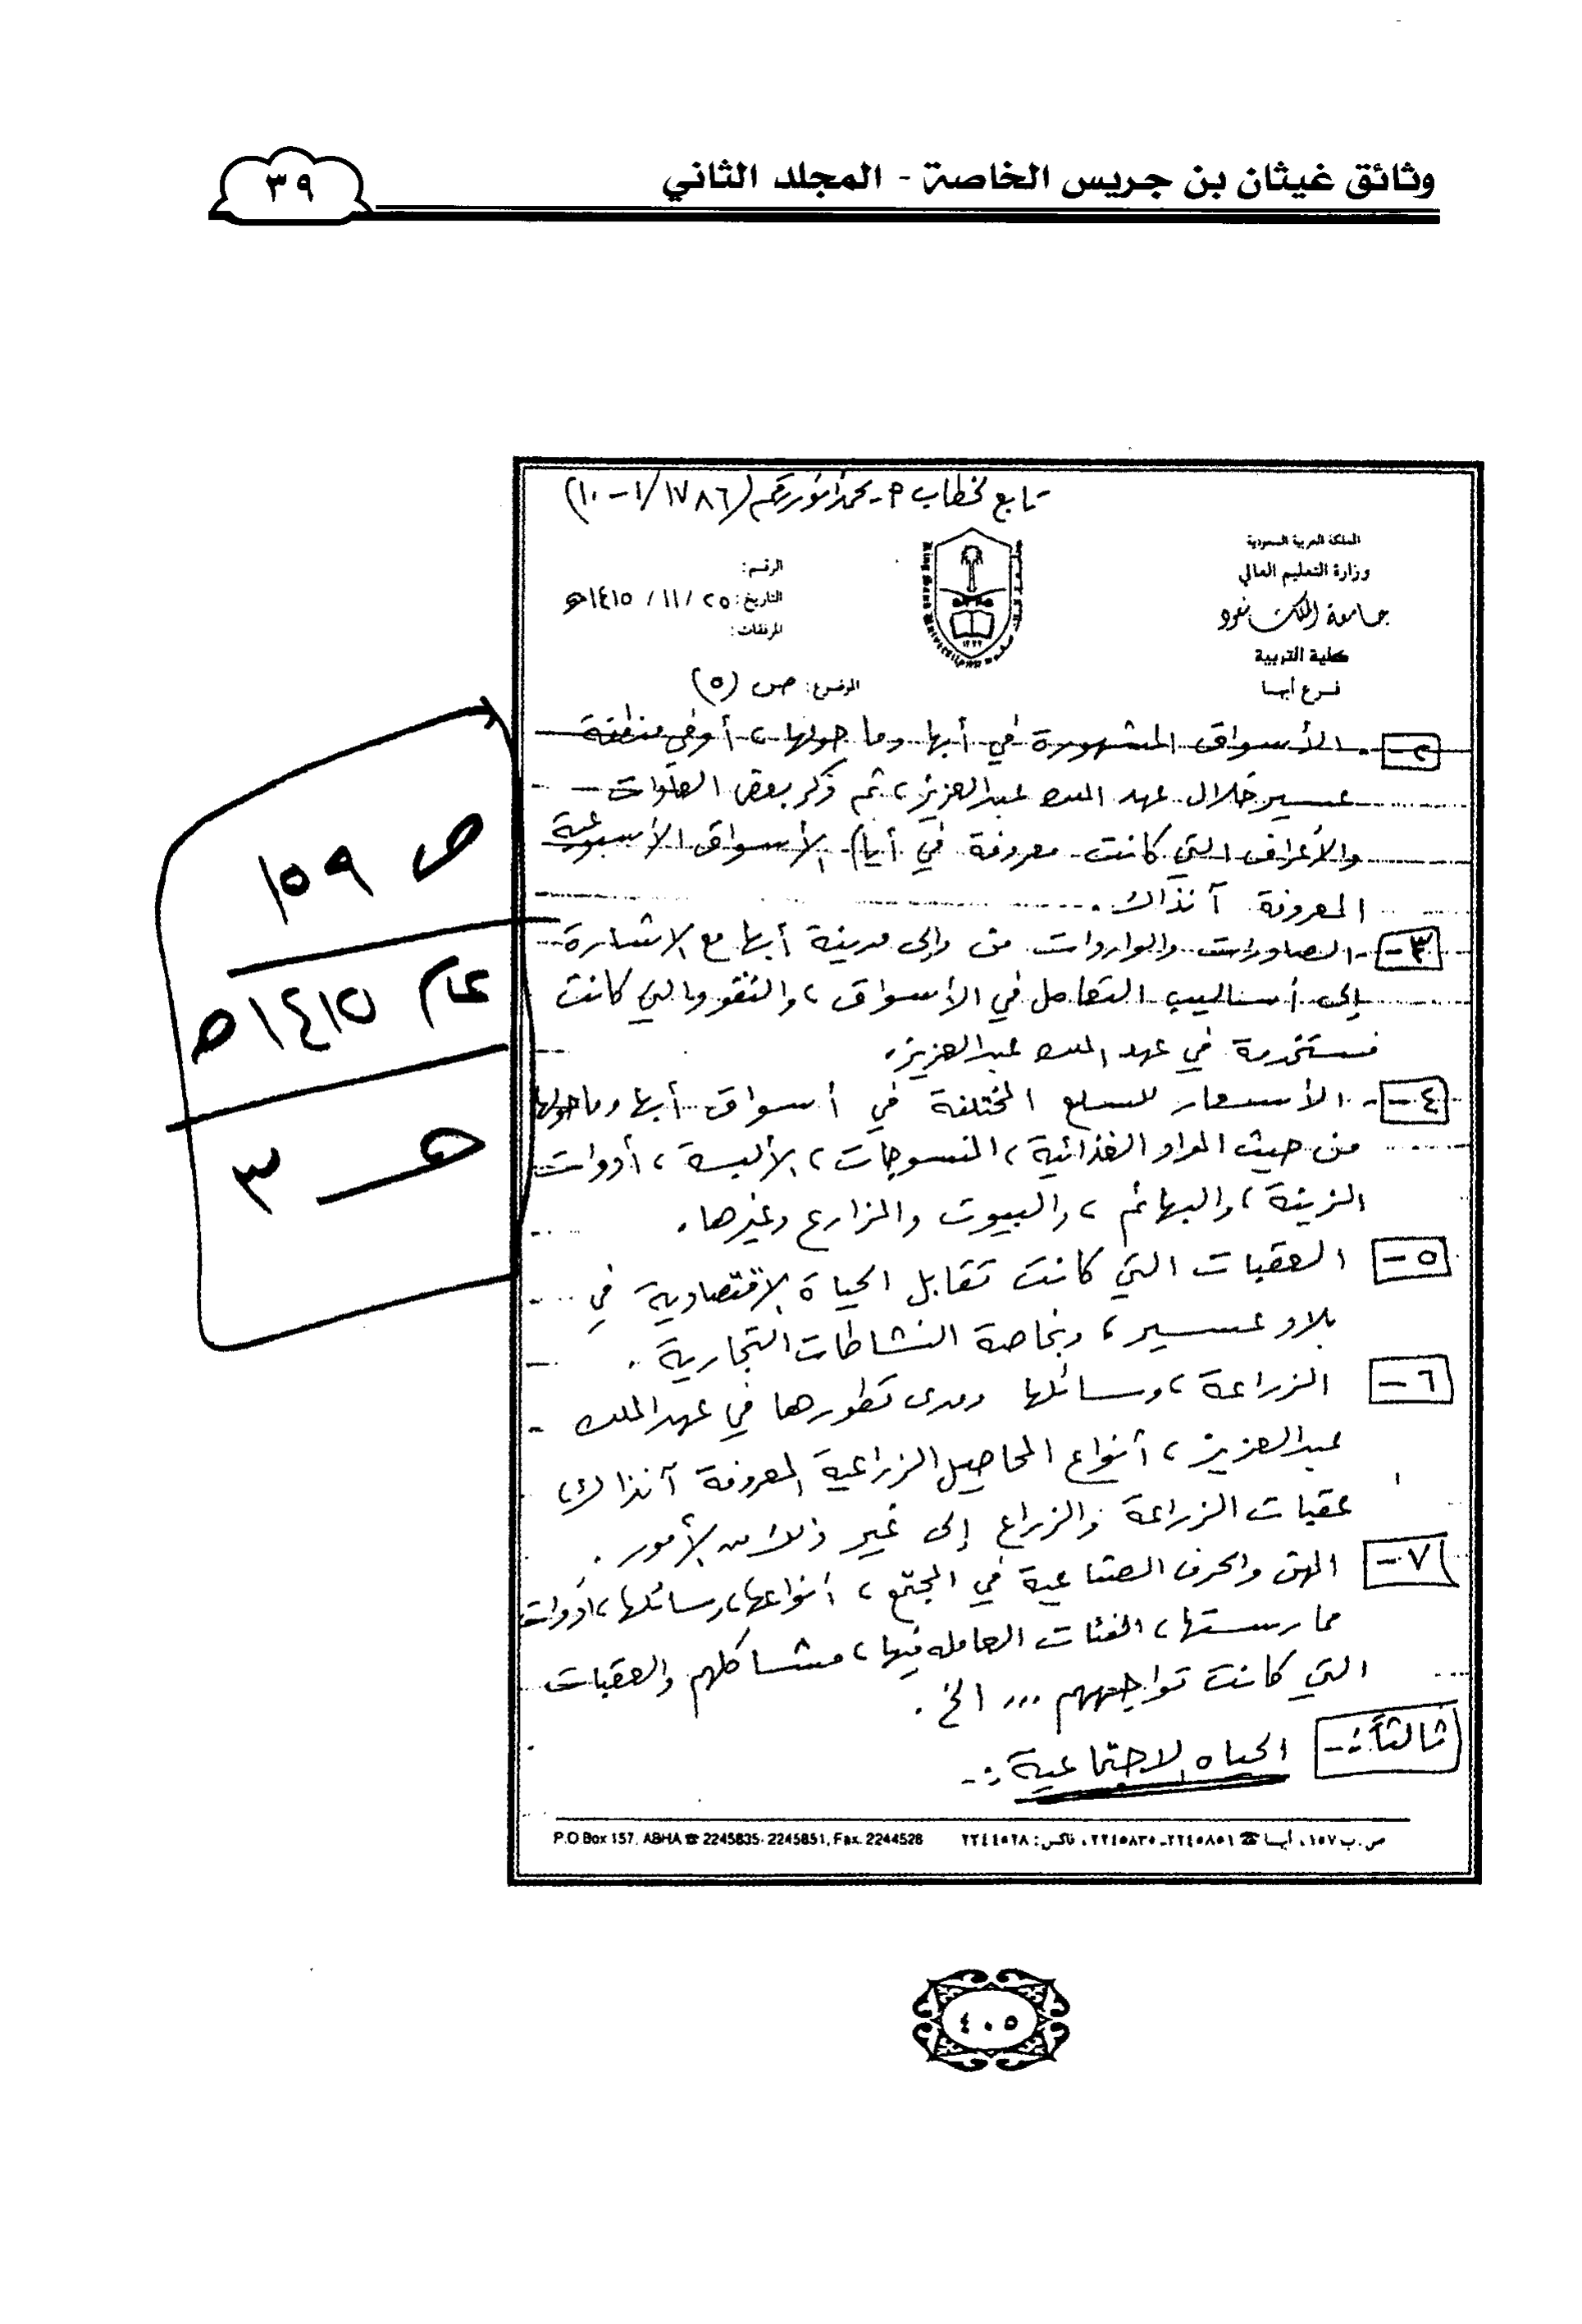 وثائق غيثان بن جريس الخاصة - المجلد الثاني
٣٩
تابع لخطاب م- محمد أنور رقم (١٧٨٦/١-١٠)
المملكة العربية السعودية
وزارة التعليم العالي
جامعة الملك سعود
كلية التربية
فرع أبها
الرقم:
التاريخ: ٢٥ / ١١ / ١٤١٥هـ
المرفقات:
الموضوع: ص (٥)
٢- الأسواق المشهورة في أبها وما حولها، أو في منطقة
عسير خلال عهد الملك عبدالعزيز، ثم ذكر بعض
والأعراف التي كانت معروفة في أيام الأسواق الأسبوعية
المعروفة آنذاك.
٣- الصادرات والواردات من وإلى مدينة أبها مع الاشارة
إلى أساليب التعامل في الأسواق، والنقود التي كانت
مستخدمة في عهد الملك عبدالعزيز.
٤- الأسعار للسلع المختلفة في أسواق أبها وما حولها
من حيث المواد الغذائية، المنسوجات، الألبسة، أدوات
الزينة، والبهائم، والبيوت والمزارع وغيرها.
٥- العقبات التي كانت تقابل الحياة الاقتصادية في
بلاد عسير، وبخاصة النشاطات التجارية.
٦- الزراعة، وسائلها ومدى تطورها في عهد الملك
عبدالعزيز، أنواع المحاصيل الزراعية المعروفة آنذاك،
عقبات الزراعة والزراع إلى غير ذلك من الأمور.
٧- المهن والحرف الصناعية في المجتمع، أنواعها، وسائلها، أدوات
ممارستها، الفئات العامله فيها، مشاكلهم والعقبات
التي كانت تواجههم ... الخ.
ثالثاً:- الحياه الاجتماعية:-
ص ١٥٩
عام ١٤١٥هـ
حـ ٣
ص.ب ١٥٧، أبها ☎ ٢٢٤٥٨٥١-٢٢٤٥٨٣٥، فاكس: ٢٢٤٤٥٢٨
P.O Box 157, ABHA ☎ 2245835- 2245851, Fax. 2244528
٤٠٥